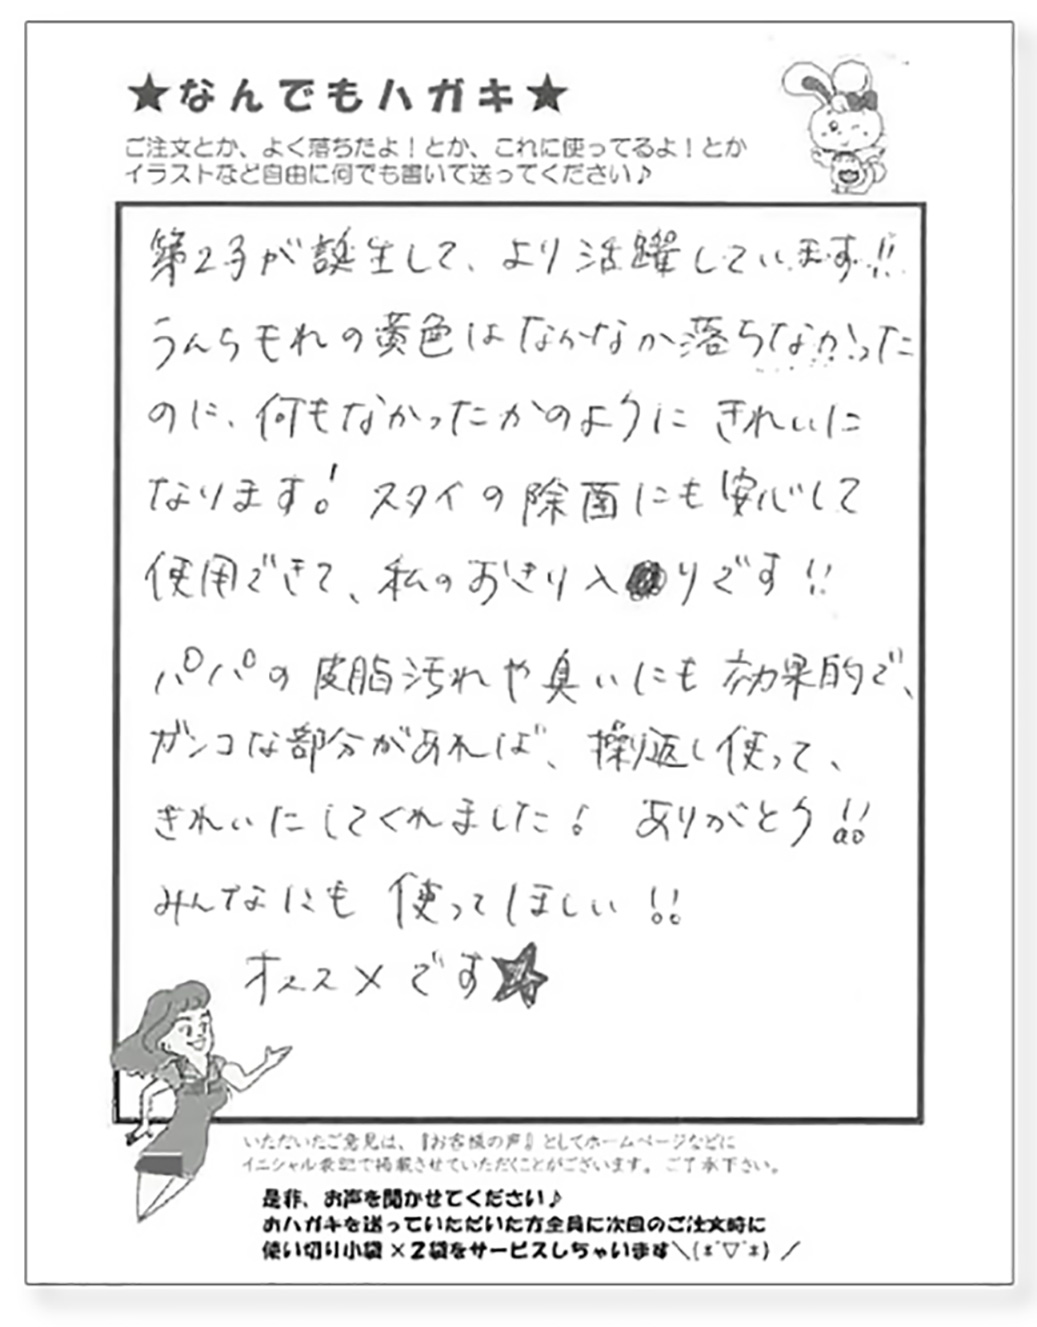 ★なんでもハガキ★
ご注文とか、よく落ちたよ！とか、これに使ってるよ！とか
イラストなど自由に何でも書いて送ってください♪
第2子が誕生して、より活躍しています!!
うんちもれの黄色はなかなか落ちなかった
のに、何もなかったかのように きれいに
なります! スタイの除菌にも安心して
使用できて、私のおきり入りです!!
パパの皮脂汚れや臭いにも効果的で、
ガンコな部分があれば、繰り返し使って、
きれいにしてくれました! ありがとう!!
みんなにも 使ってほしい!!
オススメです★
いただいたご意見は、『お客様の声』としてホームページなどに
イニシャル表記で掲載させていただくことがございます。ご了承下さい。
是非、お声を聞かせてください♪
おハガキを送っていただいた方全員に次回のご注文時に
使い切り小袋×2袋をサービスしちゃいます＼(*´▽`*)／